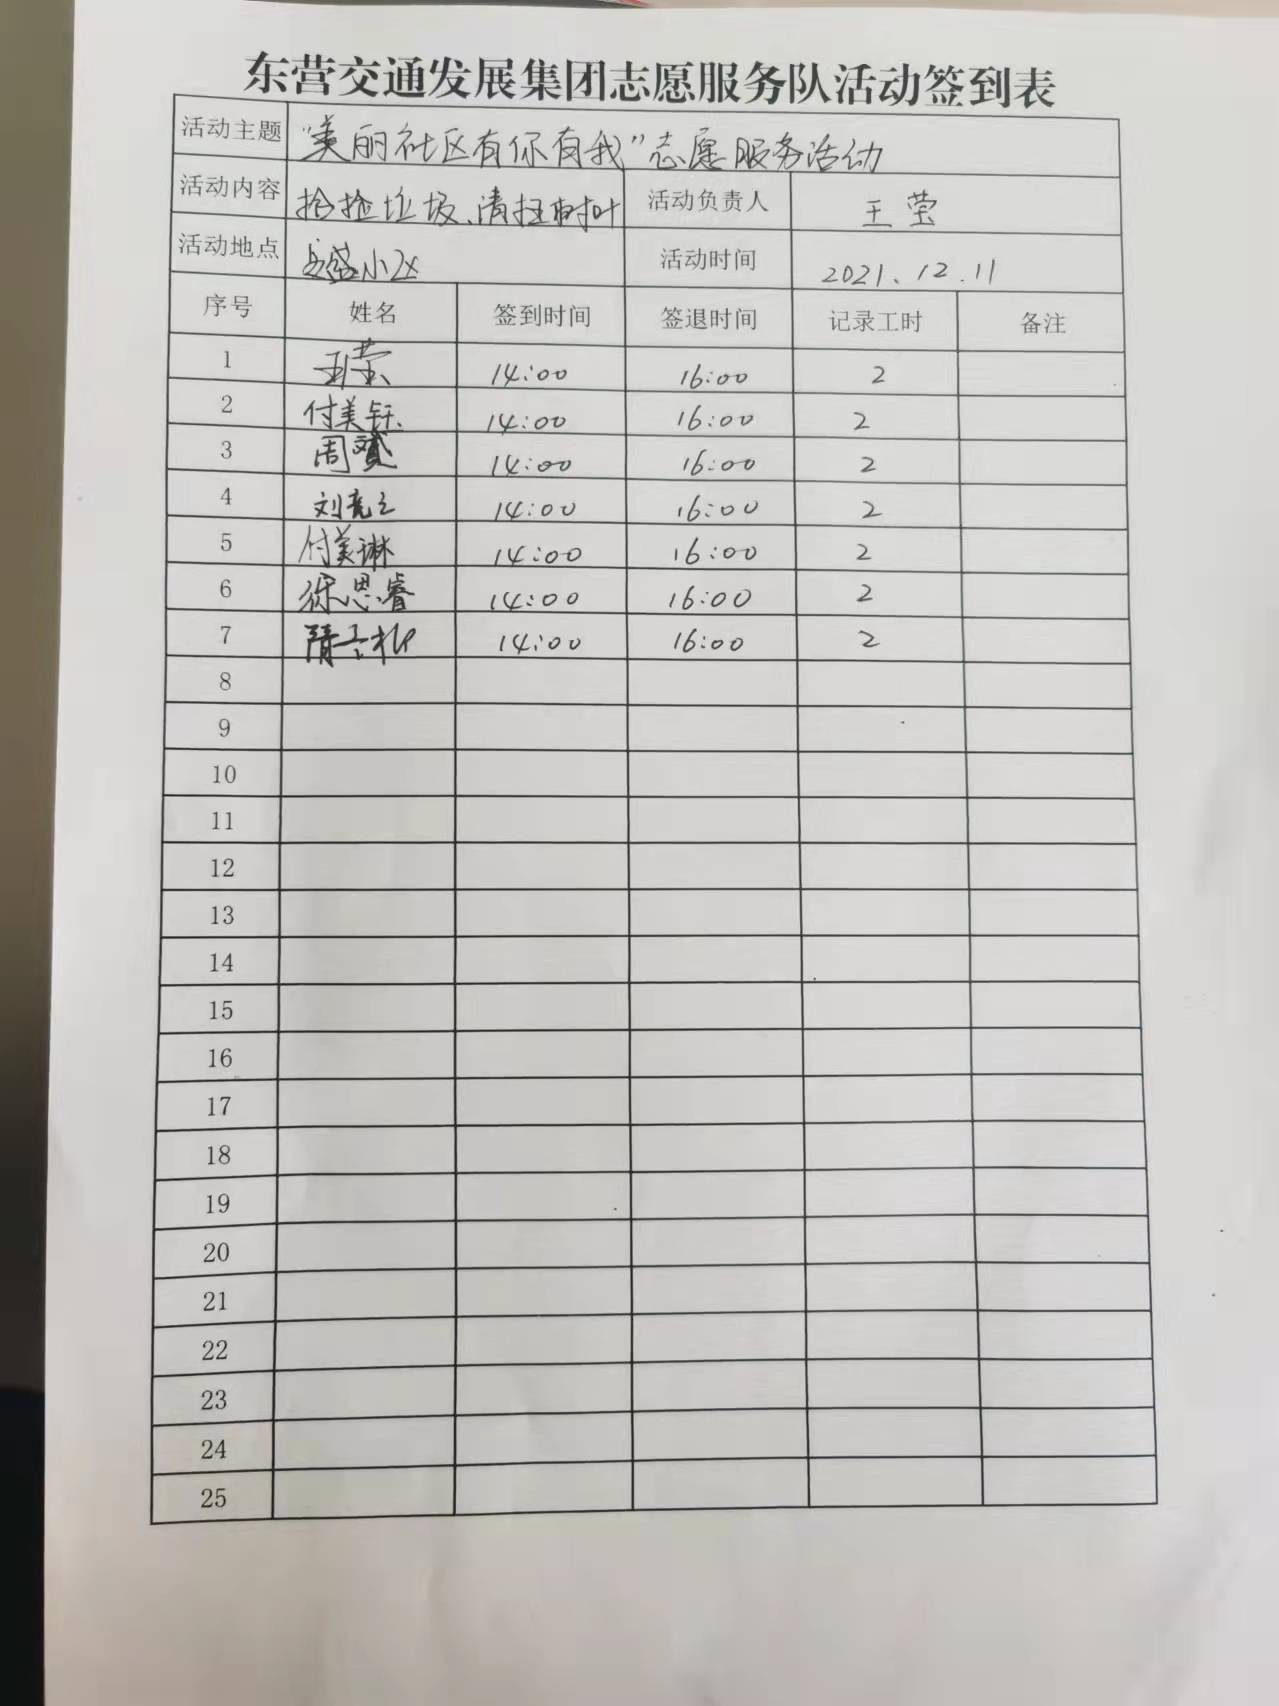 东营交通发展集团志愿服务队活动签到表
活动主题 "美丽社区有你有我"志愿服务活动
活动内容 捡垃圾、清扫树叶 活动负责人 王莹
活动地点 小区 活动时间 2021.12.11
序号 姓名 签到时间 签退时间 记录工时 备注
1 王莹 14:00 16:00 2
2 付美钰 14:00 16:00 2
3 周赟 14:00 16:00 2
4 刘 14:00 16:00 2
5 付美琳 14:00 16:00 2
6 徐思睿 14:00 16:00 2
7 隋 14:00 16:00 2
8
9
10
11
12
13
14
15
16
17
18
19
20
21
22
23
24
25